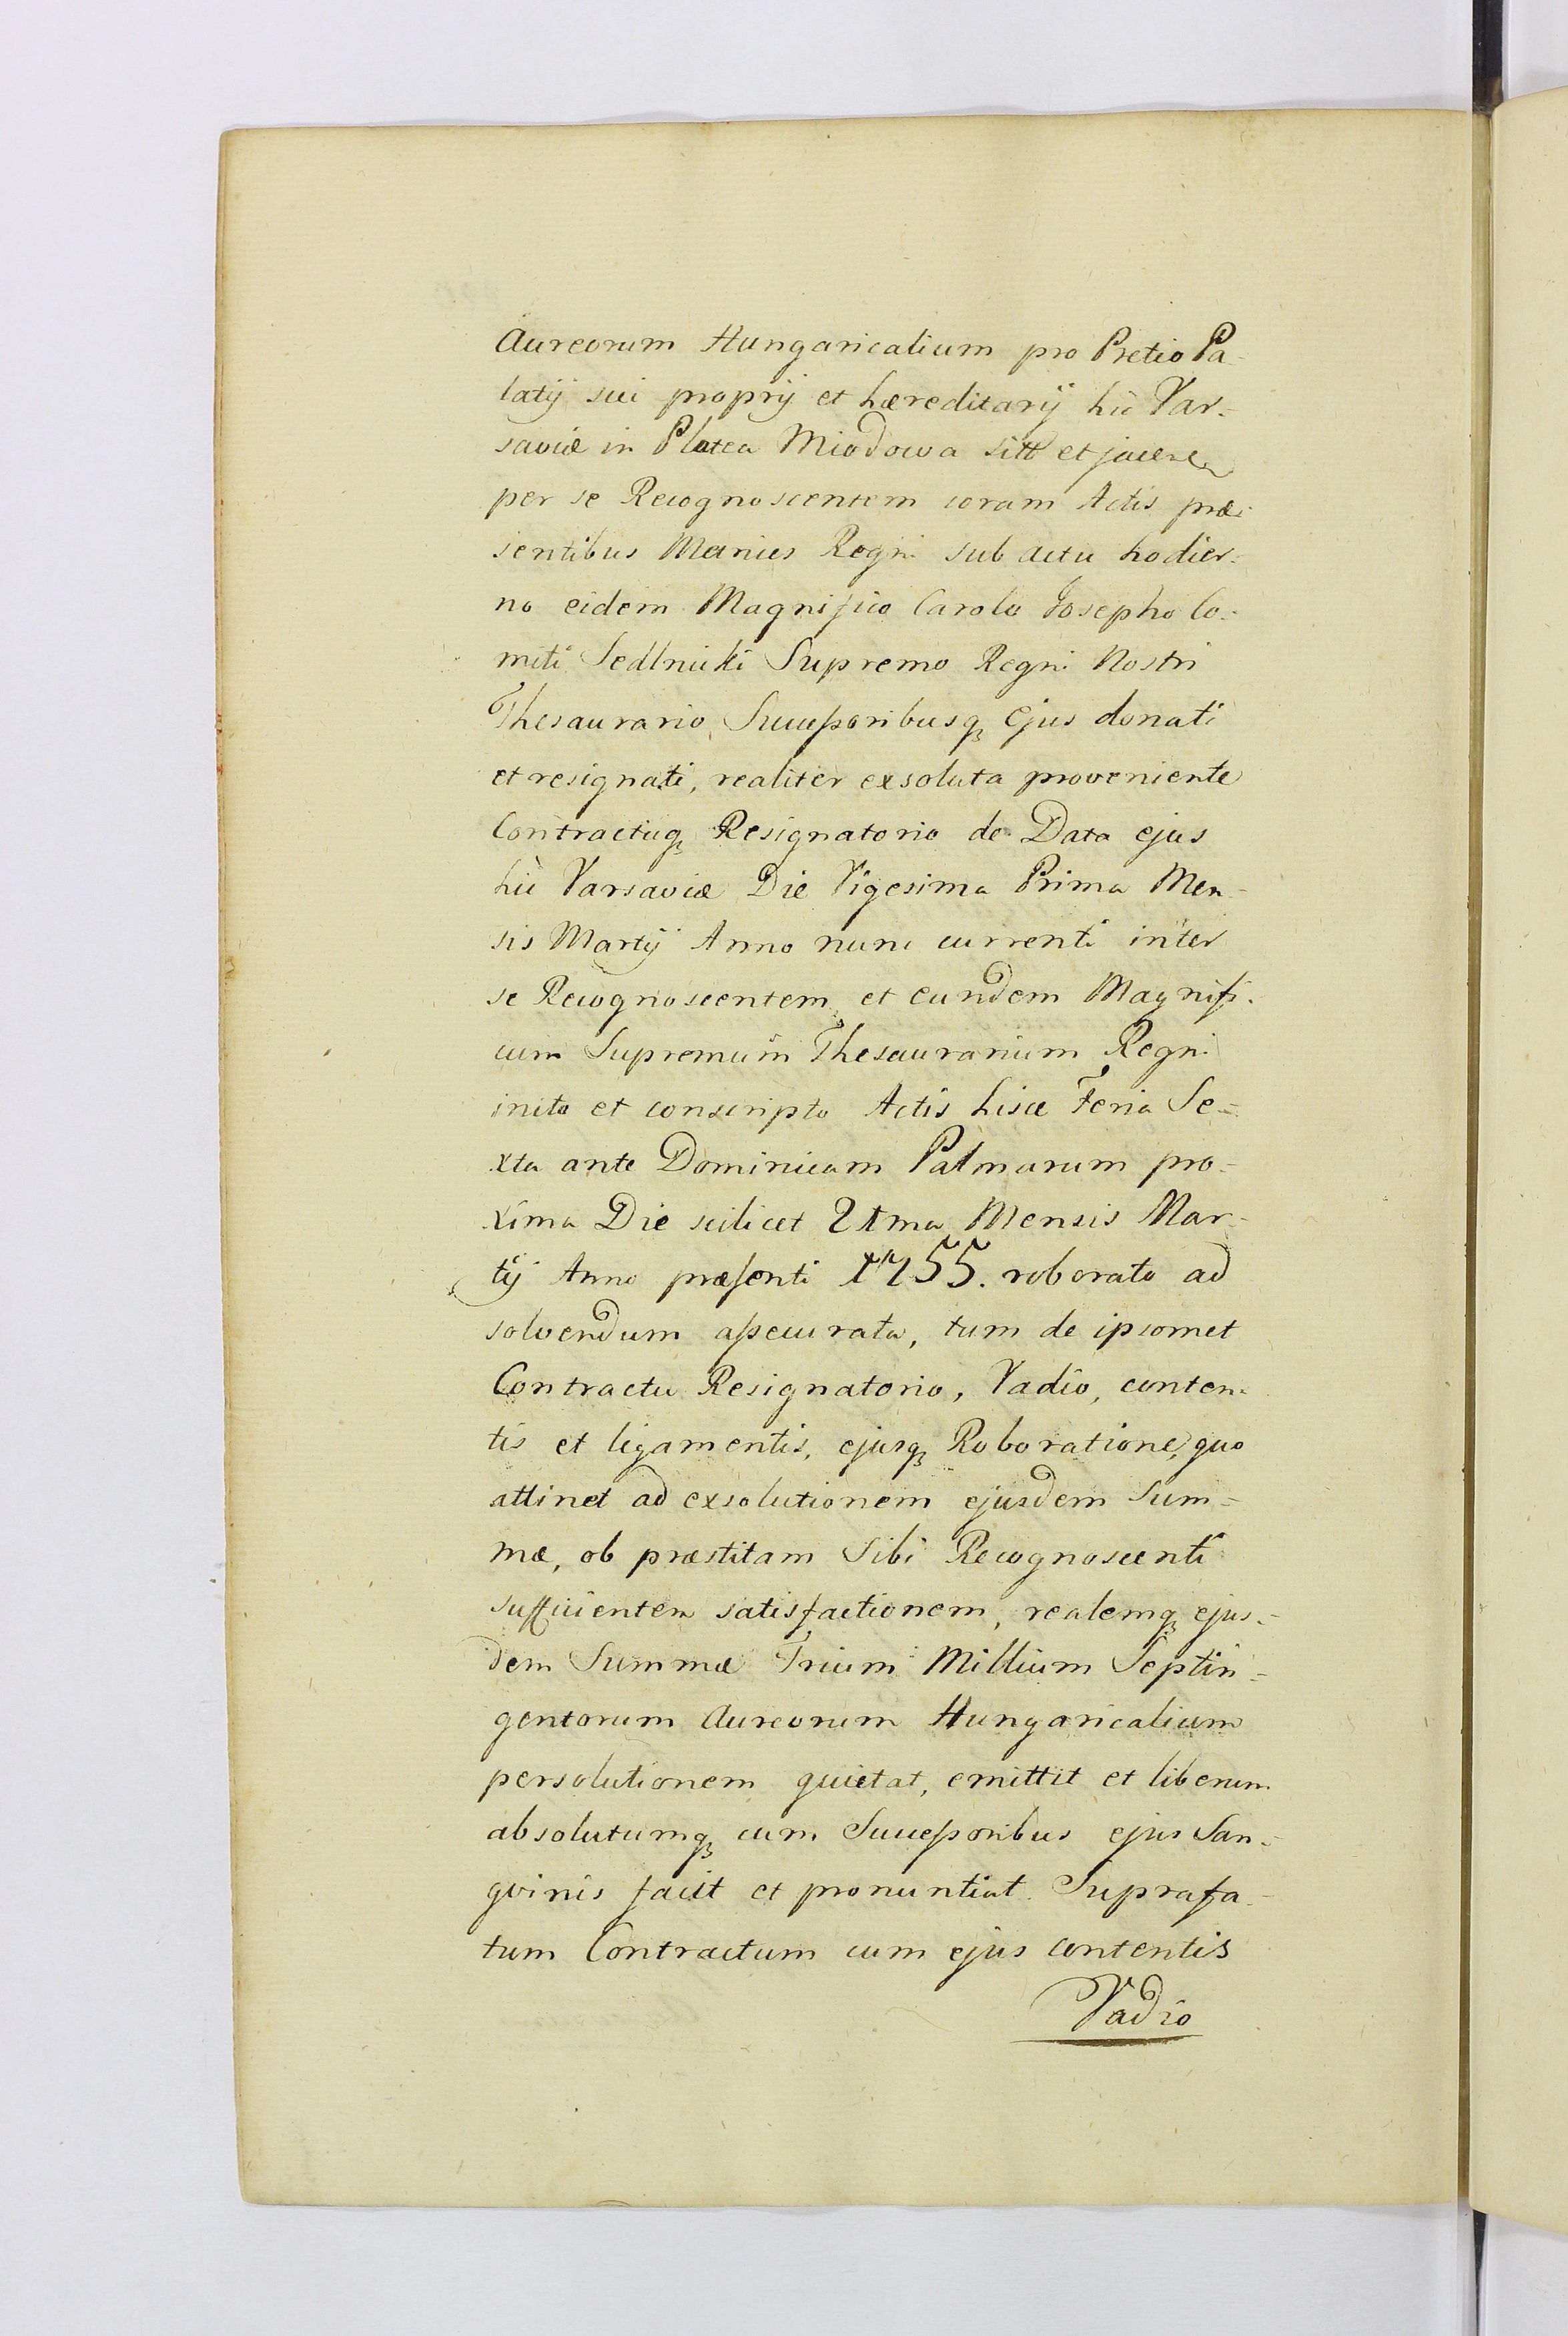 Aureorum Hungaricalium pro Pretio Pa-
latij sui proprij et hæreditarij hic Var-
saviæ in Platea Miodowa siti et jacen
per se Recognoscentem coram Actis præ-
sentibus Metrices Regni sub actu hodier-
no eidem Magnifico Carolo Josepho Co-
miti Sedlnicki Supremo Regni Nostri
Thesaurario, Successoribusq Ejus donati
et resignati, realiter exsoluta proveniente
Contractuq Resignatorio de Data ejus
hic Varsaviæ Die Vigesima Prima Men-
sis Martij Anno nunc currenti inter
se Recognoscentem et eundem Magnifi-
cum Supremum Thesaurarium Regni
inito et conscripto Actis hisce Feria Se-
xta ante Dominicam Palmarum pro-
xima Die scilicet 21ma Mensis Mar-
tij Anno præsenti 1755. roborato ad
solvendum assecurata, tum de ipsomet
Contractu Resignatorio, Vadio, conten-
tis et ligamentis, ejusq Roboratione, quo
attinet ad exsolutionem ejusdem Sum-
mæ, ob præstitam Sibi Recognoscenti
sufficientem satisfactionem, realemq ejus-
dem Summæ Trium Millium Septin-
gentorum Aureorum Hungaricalium
persolutionem quietat, emittit et liberum
absolutumq cum Successoribus ejus San-
gvinis facit et pronuntiat. Suprafa-
tum Contractum cum ejus contentis
Vadio